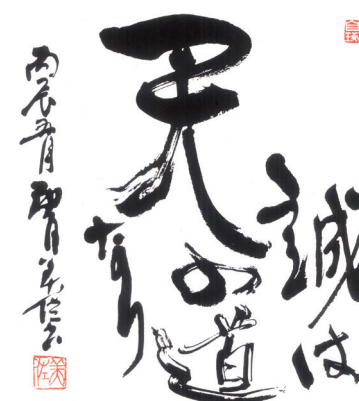 誠は
天の道
なり
丙辰五月